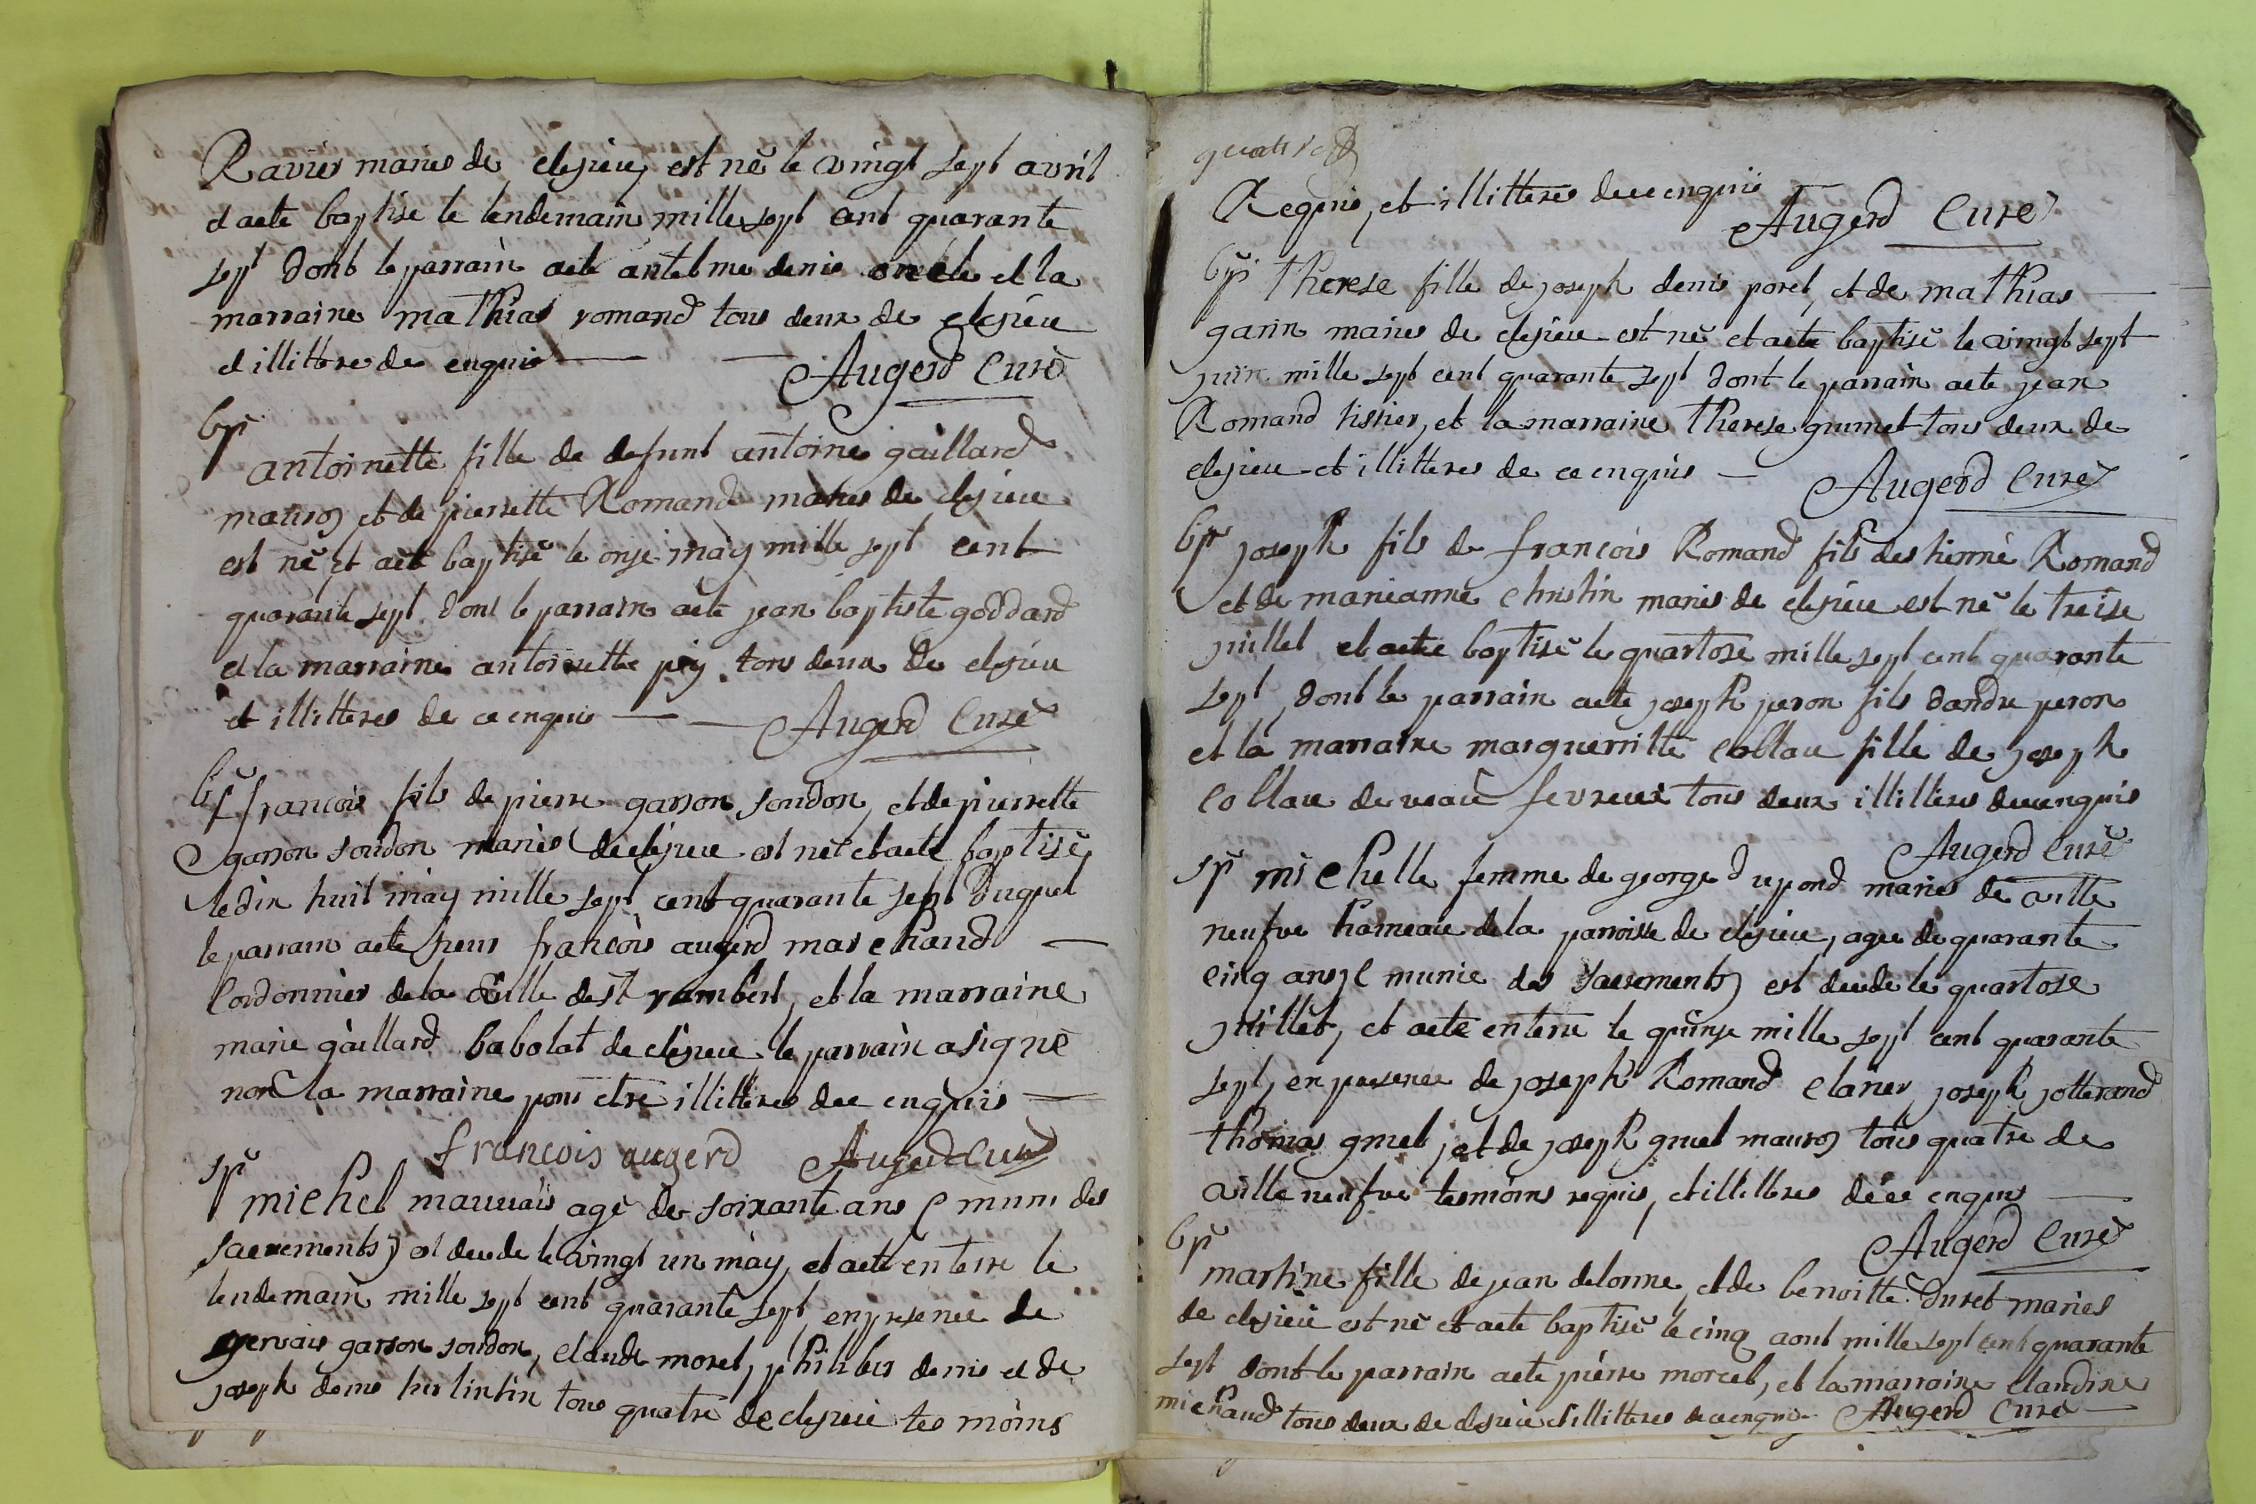 Ravier maries de clesieu, est nė le vingt sept avril
et aete baptise le lendemain mille sept cent quarante
sept dont le parrain aete antelme denis oncle et la
marraine mathias romand tous deux de clesieu
et illittere de enquis Augerd Curé
bp
antoinette fille de defunt antoine gaillard
mauros et de pierrette Romand maries de clesieu
est nė et aete baptisė le onze may mille sept cent
quarante sept dont le parrain aete jean baptiste goddard
et la marraine antoinette pey tous deux de clesieu
et illitteres de ce enquis Augerd Curé
bp francois fils de pierre garson soudon, et de pierrette
garson soudon maries de clesieu est nė et aete baptisė
le dix huit may mille sept cent quarante sept duquel
le parrain aete sieur francois augerd marchand
Cordonnier de la ville de st rambert, et la marraine
marie gaillard babolat de clesieu le parrain a signé
non la marraine pour etre illitteres de ce enquis
francois augerd Augerd Curé
sp
michel mauvais agė de soixante ans (muni des
sacrements) est decede le vingt un may, et aete enterre le
lendemain mille sept cent quarante sept en presence de
gervais garson soudon, claude morel, philiber denis et de
joseph denis tous quatre de clesieu tesmoins
Requis, et illitteres de ce enquis
Augerd Curé
bp therese fille de joseph denis porel, et de mathias
garin maries de clesieu est nė, et aete baptisė le vingt sept
juin mille sept cent quarante sept dont le parrain aete jean
Romand tissier, et la marraine therese grumet tous deux de
clesieu et illitteres de ce enquis Augerd Curé
bp joseph fils de francois Romand fils destienne Romand
et de marianne christin maries de clesieu est nė le treise
juillet et aete baptisė le quartose mille sept cent quarante
sept, dont le parrain aete joseph peron fils dandre peron
et la marraine marguerritte collau fille de joseph
collau de vaau fevreux tous deux illitteres de ce enquis
Augerd Curé
sp michelle femme de george dupond maries de ville
neufve hameau de la parroisse de clesieu, agee de quarante
cinq ans (munie des sacrements) est decede le quartose
juillet, et aete enterre le quinse mille sept cent quarante
sept, en presence de joseph Romand claner, joseph jotterand
thomas gruel, et de joseph gruel mauros tous quatre de
ville neufve tesmoins requis, et illitteres de ce enquis
Augerd Curé
bp
martine fille de jean delorme, et de benoitte duret maries
de clesieu est nė et aete baptisė le cinq aout mille sept cent quarante
sept dont le parrain aete pierre morcel, et la marraine claudine
michaud tous deux de clesieu et illitteres de ce enquis Augerd Curé